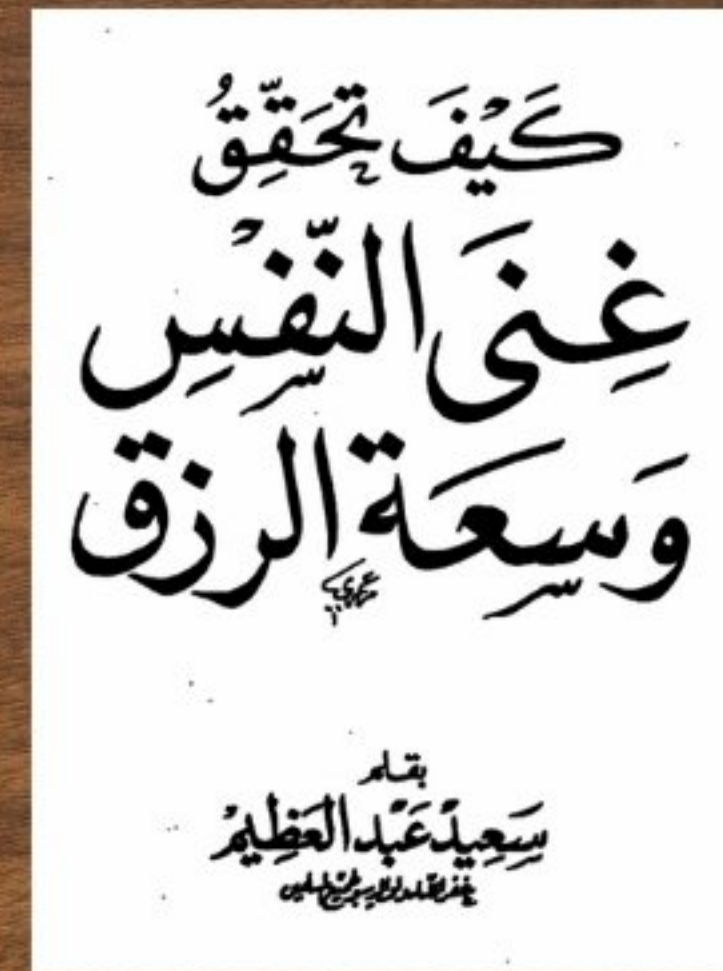 كَيْفَ تحَقِّقُ
غِنَى النَّفْسِ
وَسِعَة الرزق
بقلم
سَعِيدْ عَبْد العَظِيمْ
غفر الله له ولوالديه ولجميع المسلمين